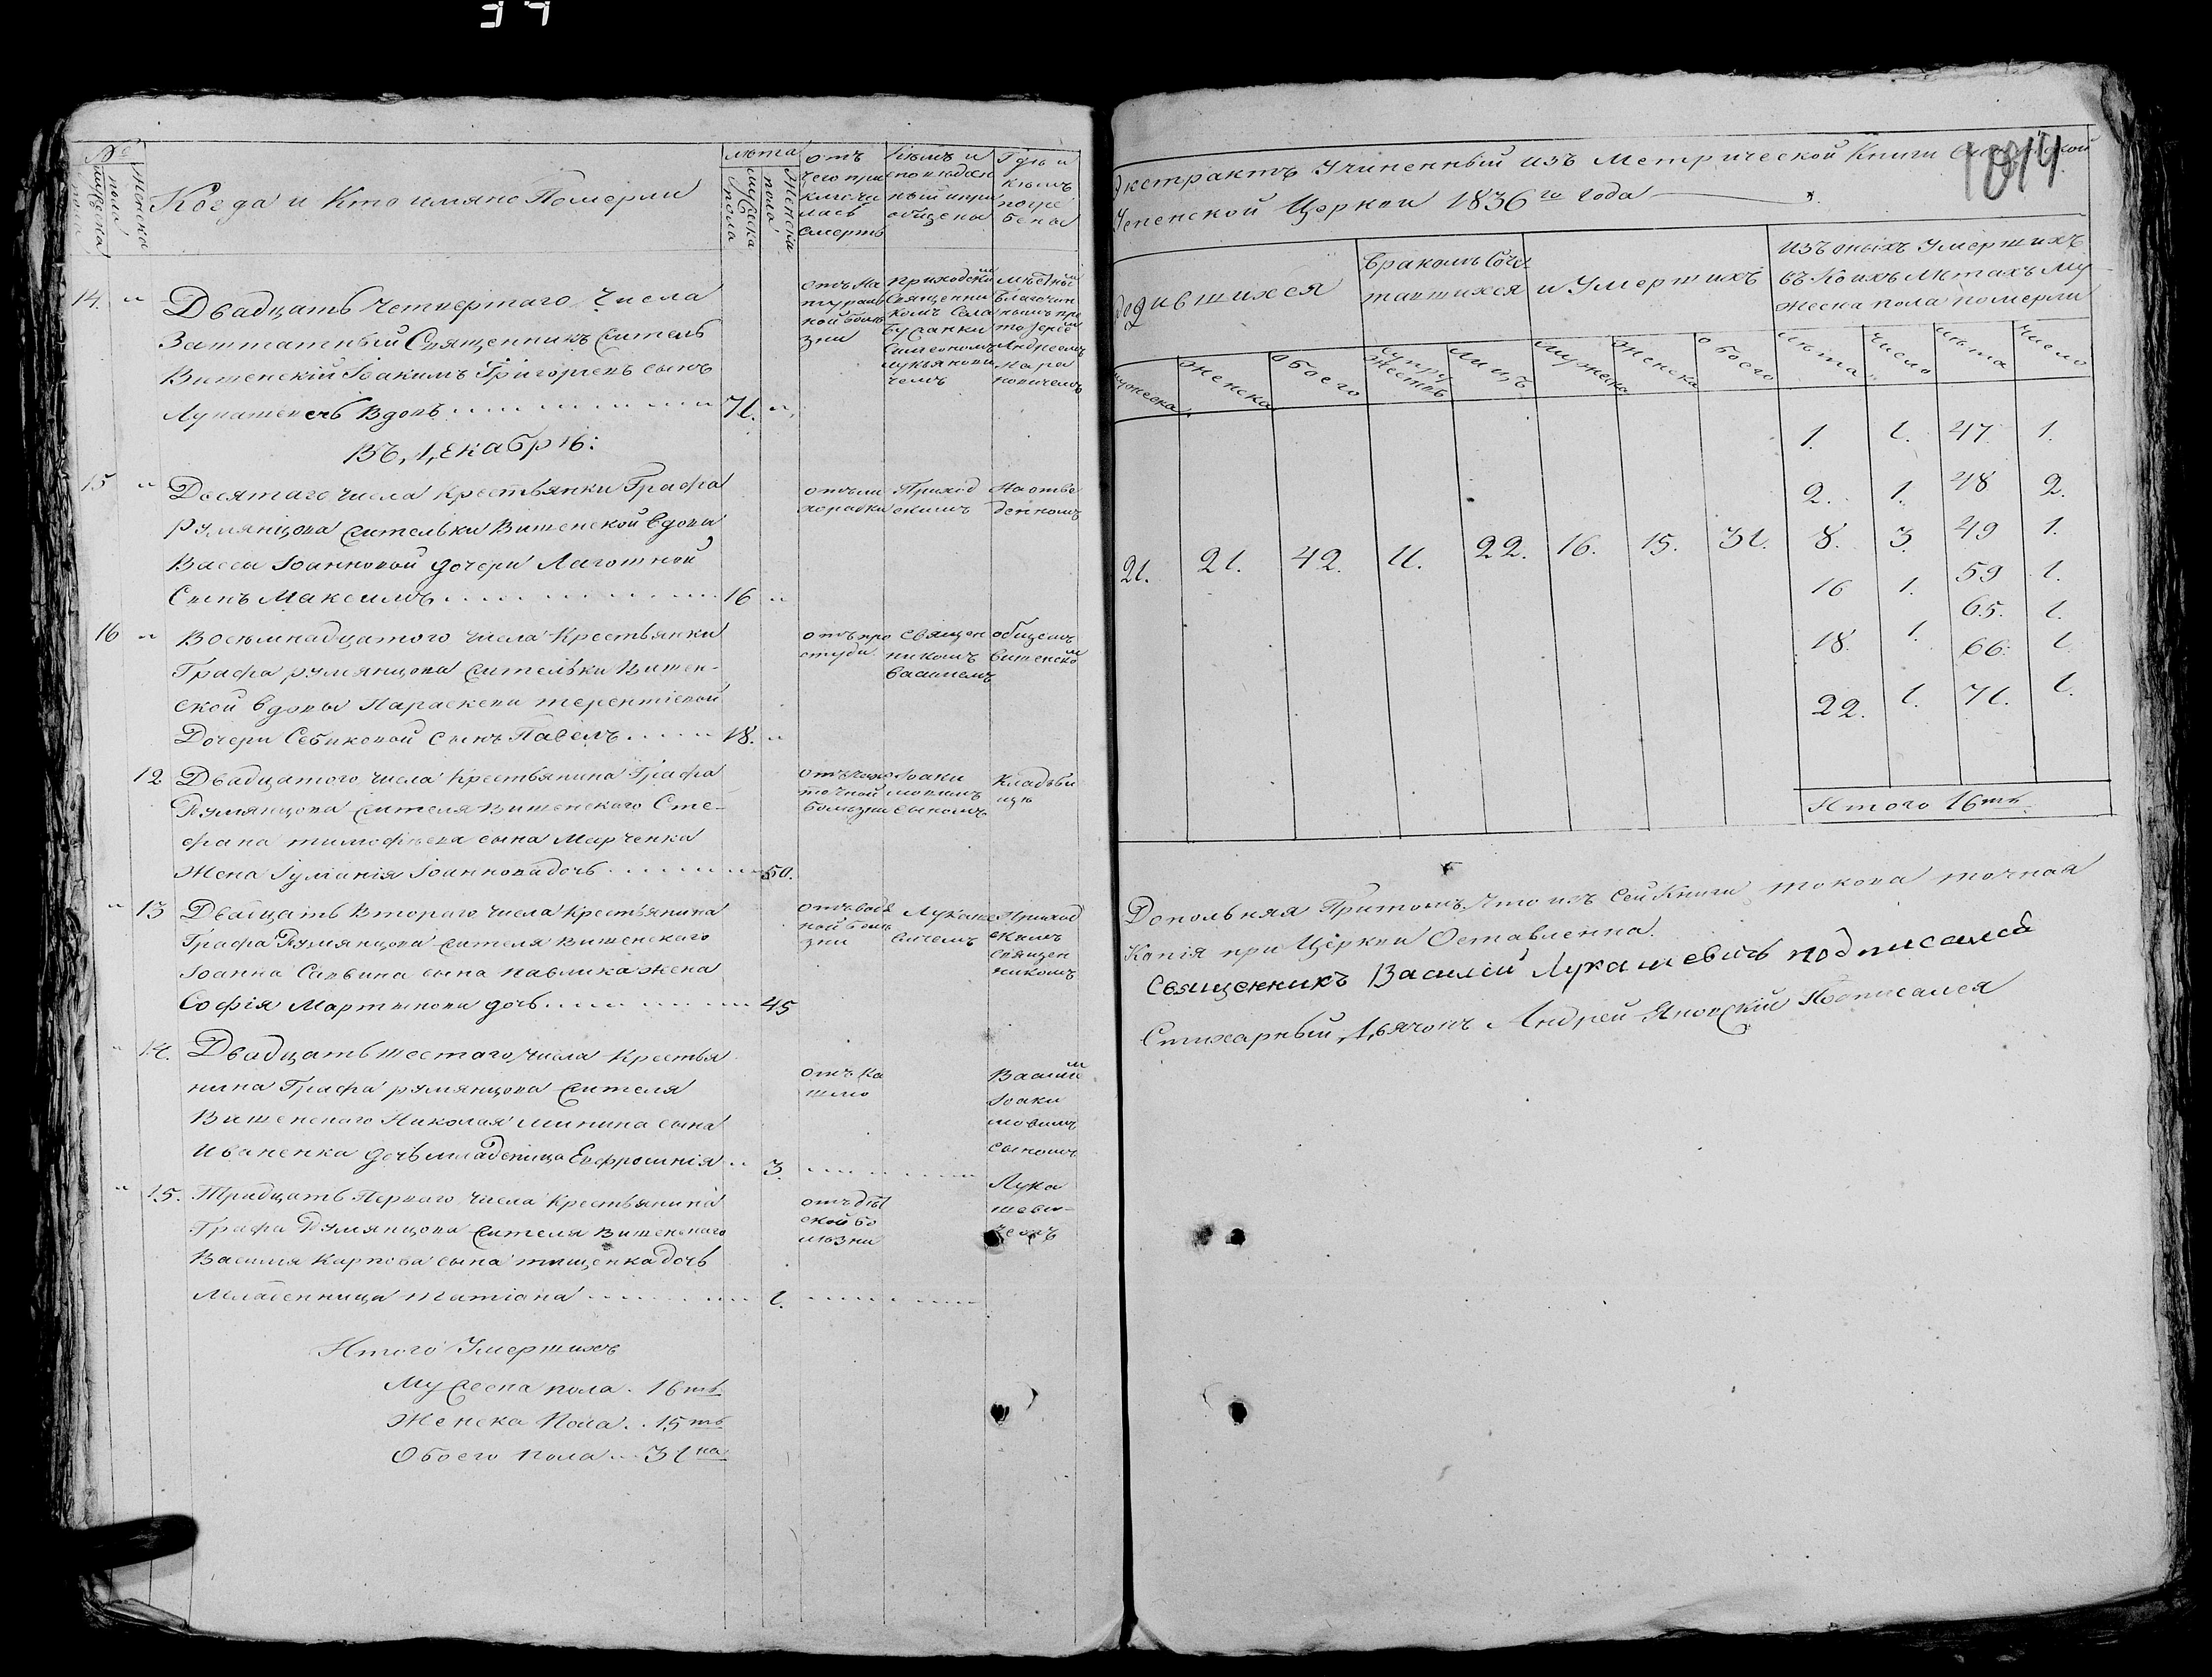 №
мужеска
пола
женска
Когда и Кто имяно Померли
лета
мужеска
пола
женска
пола
отъ
чего при
ключи
лась
смерть
кемъ и
исповедан
ный и прі
общены
Где и
кемъ
погре
бены
14. „ Двадцать четвертаго числа
Заштатный Священникъ житель
Вишенскій Іоакимъ Григоріевъ сынъ
Лукашевечъ вдовъ 71. „
отъ На
тураль
ной боле
зни
приходски м
Священни
комъ Села
Бурапки
Симеономъ
Лукьянови
чемъ
местны м
благочин
нымъ про
тоіерее м
Андреемъ
новичемъ
Въ Декабре:
15 „ Десятаго числа крестьянки Графа
Румянцова жительки Вишенской вдовы
Вассы Іоанновой дочери Лаготной
Сынъ Максимъ 16 „
отъ ли
хорадки
Приход
скимъ
На отве
денномъ
16 „ Восемнадцатого числа Крестьянки
Графа румянцова жительки Вишен-
ской вдовы Параскеви терентіевой
Дочери Себиковой сынъ Павелъ 18. „
отъ про
студи
священ
никомъ
василіемъ
общемъ
вишенско м
12 Двадцатого числа Крестьянина Графа
Румянцова жителя Вишенскаго Сте-
фана тимофеева сына Марченка
Жена Іуліанія Іоаннова дочь 50.
отъ
точной
болезни
Іоаки
мовимъ
сыномъ
кладови
ще
„ 13 Двадцать втораго числа крестьянина
Графа Румянцова жителя вишенскаго
Іоанна Саввина сына павлика жена
Софія Мартинова дочь 45
отъ
ной боле
зни
Лукаше
вичемъ
Приход
скимъ
священ
никомъ
„ 14. Двадцать шестаго числа Крестья
нина Графа румянцова жителя
Вишенскаго Николая минина сына
Иваненка дочь младеница Евфросинія 3.
отъ ка
шлю
Василіе м
Іоаки
мовимъ
сыномъ
„ 15. Тридцать Перваго числа крестьянина
Графа Румянцова жителя вишенскаго
Василія Карпова сына тищенка дочь
Младенница татіана 1.
отъ дет
ской бо
лезни
Лука
шеви-
чемъ
Итого Умершихъ
Мужеска пола . 16ть
Женска Пола . . 15ть
Обоего пола . . 31на
1014
Экстрактъ Учиненный изъ Метрической Книги
Успенской Церкви 1836го Года
родившихся
бракомъ Соче
тавшихся
и Умершихъ
изъ оныхъ Умершихъ
въ коихъ Летахъ Му
жеска пола померли
мужеска
женска
обоего
супру
жествъ
лицъ
мужеска
женска
обоего
лета
число
лета
число
1. 1. 47. 1.
2. 1. 48 2.
21. 21. 42. 11. 22. 16. 15. 31. 8. 3. 49 1.
16 1. 59 1.
65. 1.
18. 1. 66. 1.
22. 1. 71. 1.
Итого 16ть.
Дополняя Притомъ, Что изъ Сей Книги токова точная
Копія при Церкви Оставленна.
Священникъ Василій Лукашевичъ подписался
Стихарный Дьячокъ Андрей Яновскій Подписался